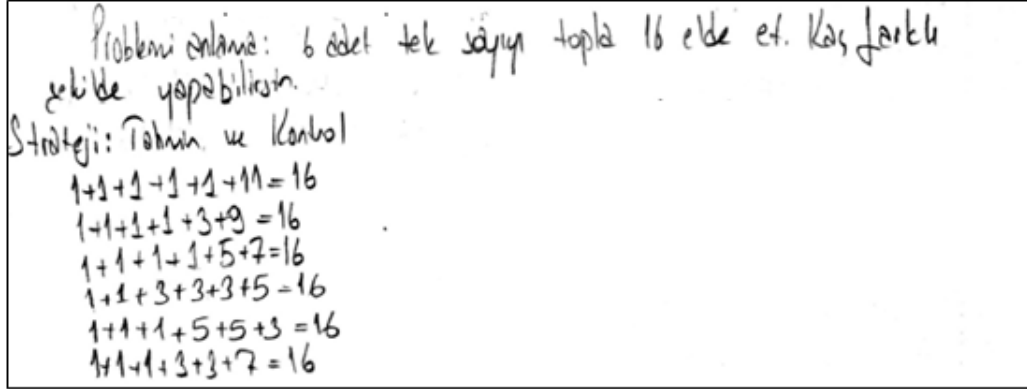 Problemi anlama: 6 adet tek sayıyı topla 16 elde et. Kaç farklı
şekilde yapabilirsin.
Strateji: Tahmin ve Kontrol
1+1+1+1+1+11=16
1+1+1+1+3+9=16
1+1+1+1+5+7=16
1+1+3+3+3+5=16
1+1+1+5+5+3=16
1+1+1+3+3+7=16